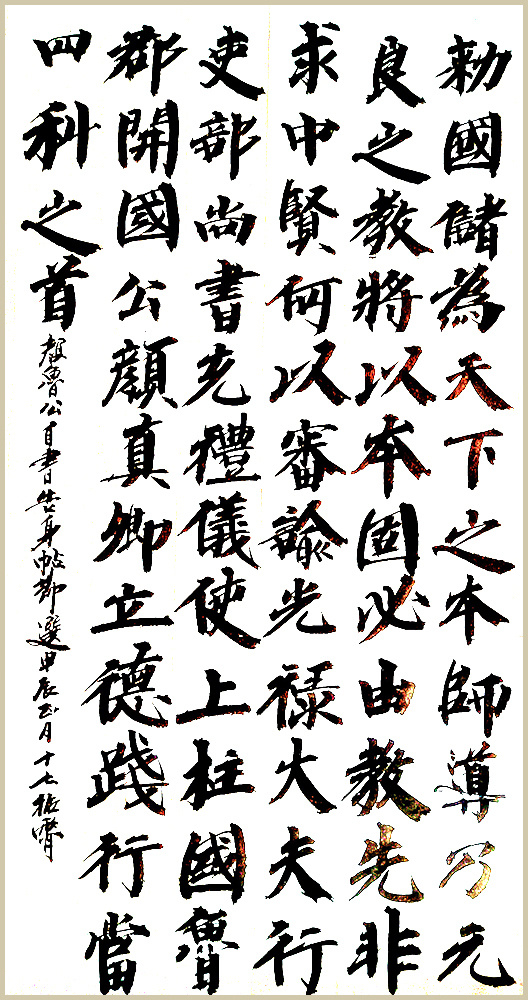 勑國儲為天下之本師導乃元
良之教將以本固必由教先非
求中賢何以審諭光祿大夫行
吏部尚書充禮儀使上柱國魯
郡開國公顏真卿立德踐行當
四科之首
顏魯公自書告身帖節選甲辰正月十七振濟